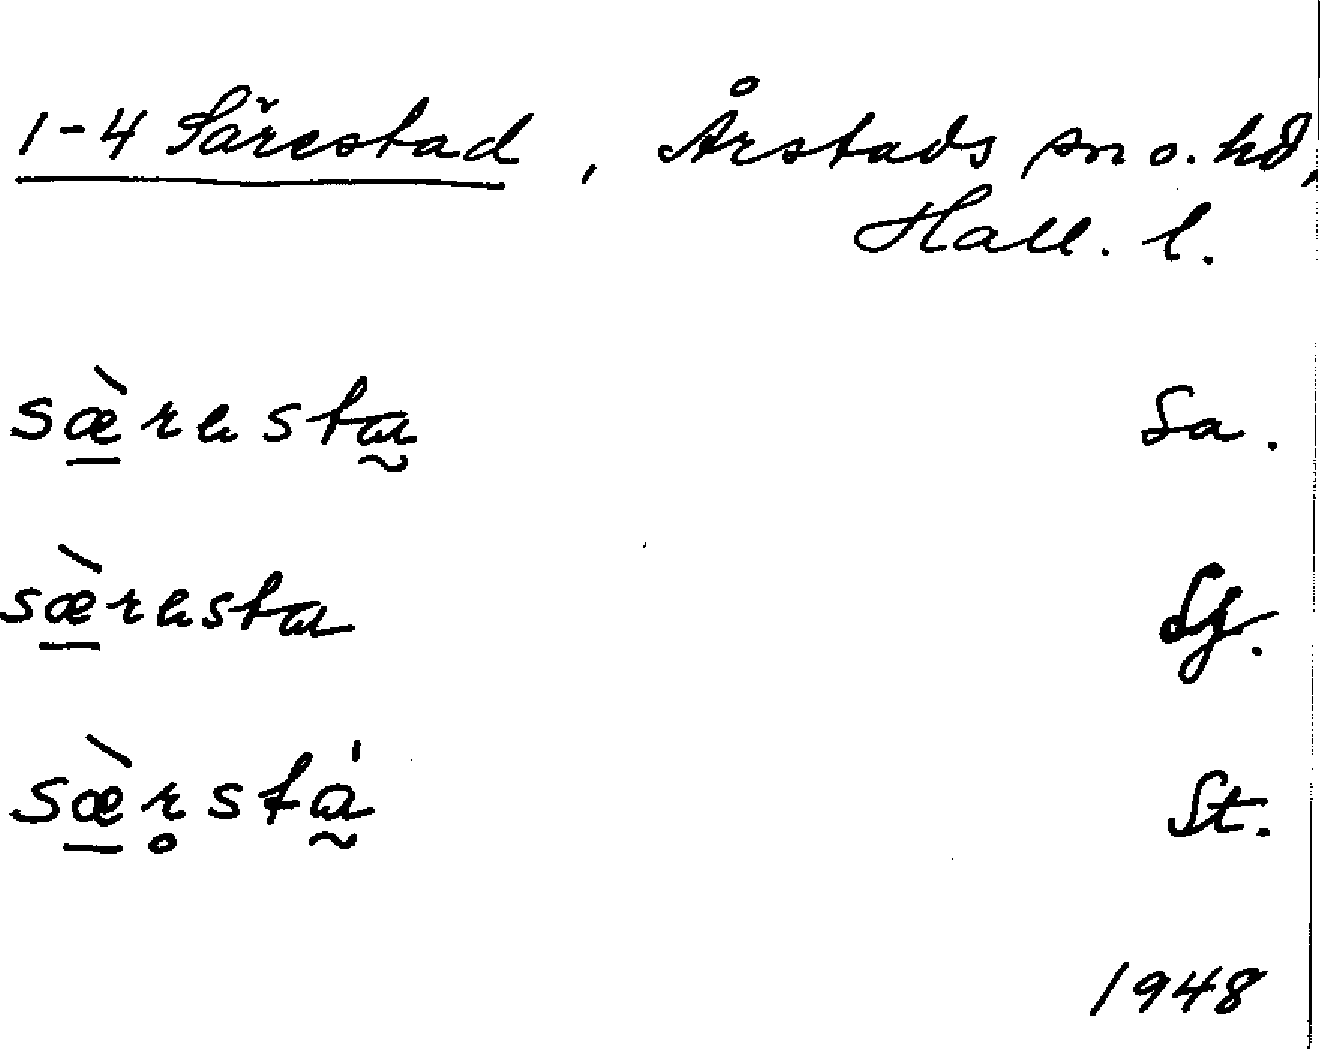 1-4 Särestad, Årstads sn o. hd,
Hall. l.
sæ̱̀resta̰ Sa.
sæ̱̀resta Sg.
sæ̱̀r̥stá̰ St.
1948